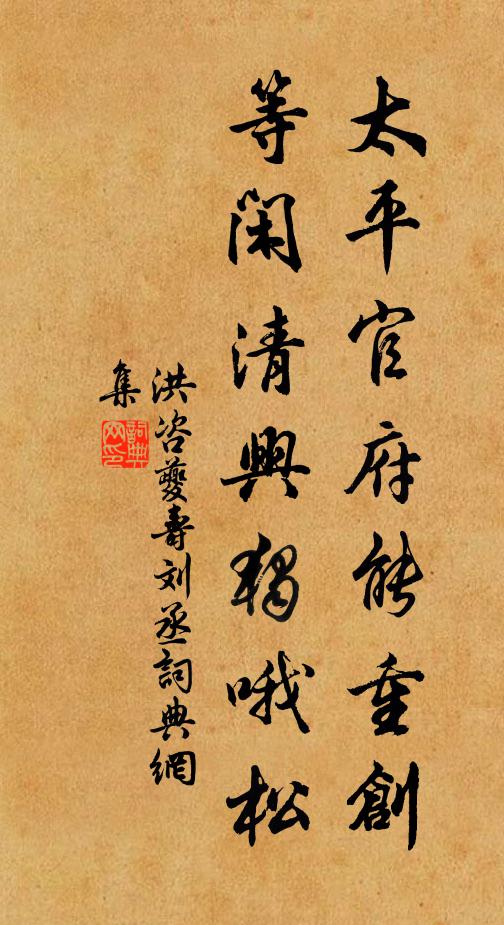 太平官府能重創
等閑清興獨哦松
洪咨夔壽刘丞詞典網
集
詞典
网印